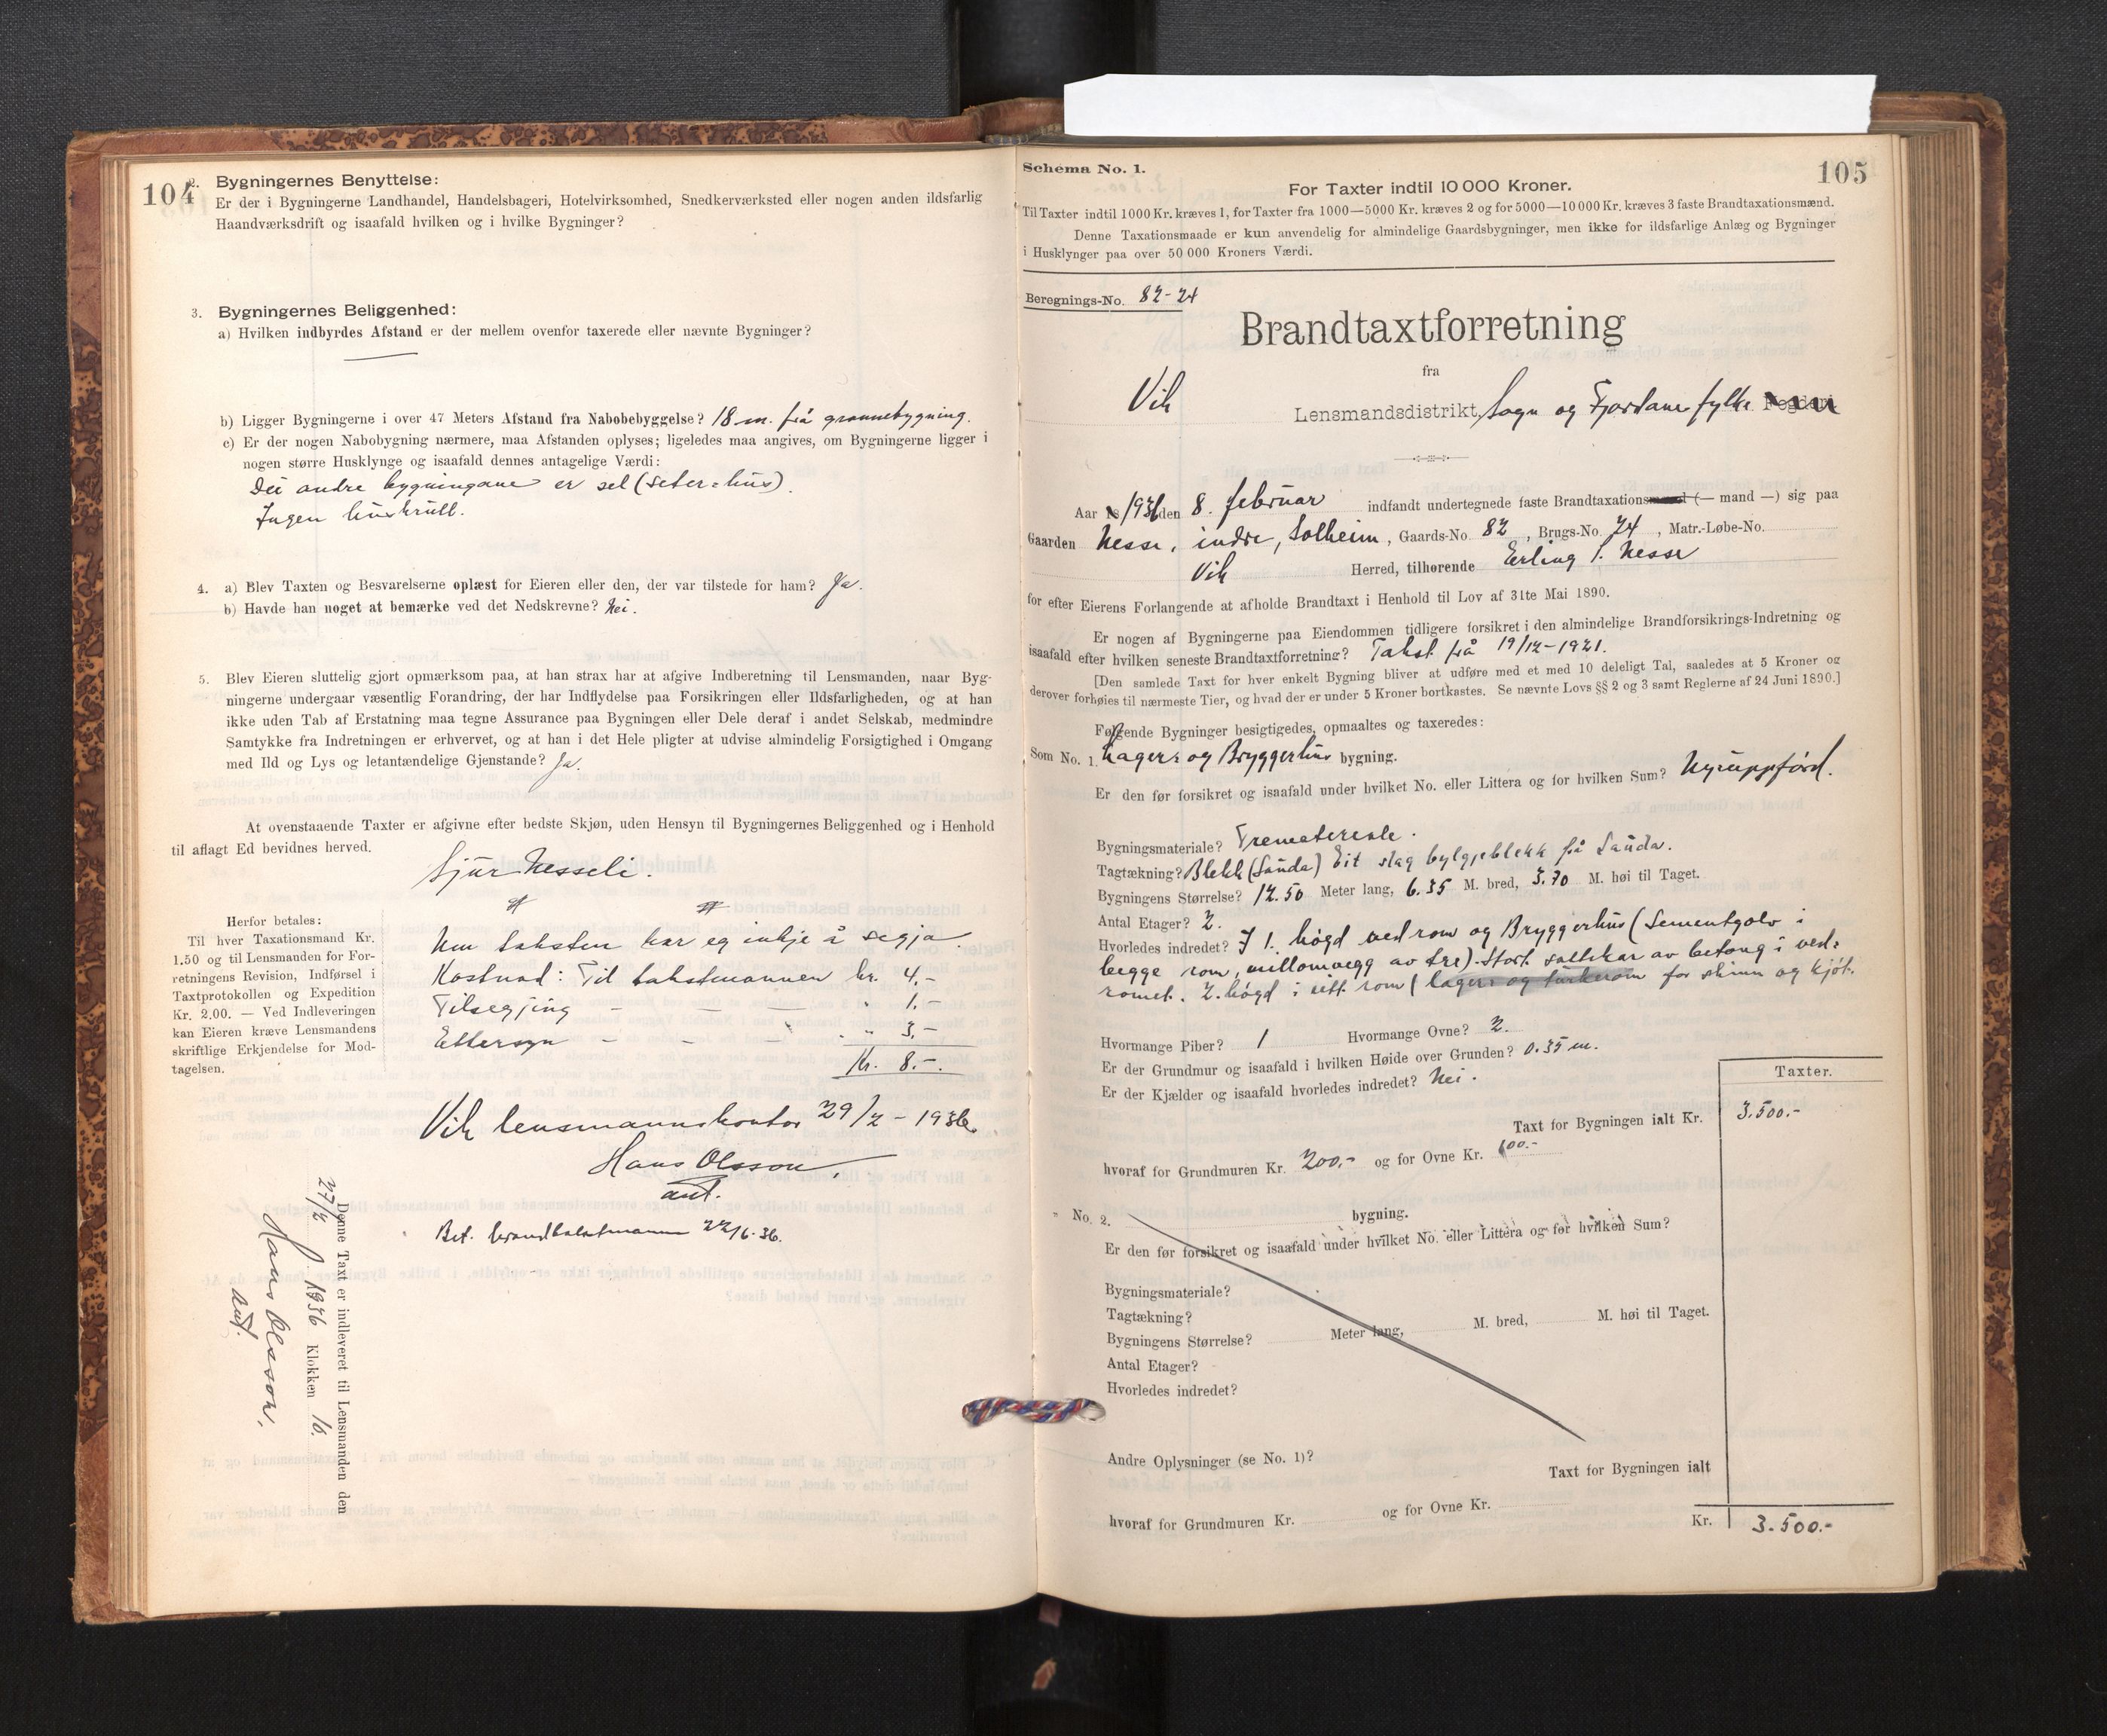 104
2. Bygningernes Benyttelse:
Er der i Bygningerne Landhandel, Handelsbageri, Hotelvirksomhed, Snedkerværksted eller nogen anden ildsfarlig
Haandværksdrift og isaafald hvilken og i hvilke Bygninger?
3. Bygningernes Beliggenhed:
a) Hvilken indbyrdes Afstand er der mellem ovenfor taxerede eller nævnte Bygninger?
b) Ligger Bygningerne i over 47 Meters Afstand fra Nabobebyggelse? 18 m. frå grannebygning.
c) Er der nogen Nabobygning nærmere, maa Afstanden oplyses; ligeledes maa angives, om Bygningerne ligger i
nogen større Husklynge og isaafald dennes antagelige Værdi:
Dei andre bygningane er sel (seter=hus).
Ingen huskrull.
4. a) Blev Taxten og Besvarelserne oplæst for Eieren eller den, der var tilstede for ham? Ja.
b) Havde han noget at bemærke ved det Nedskrevne? Nei.
5. Blev Eieren sluttelig gjort opmærksom paa, at han strax har at afgive Indberetning til Lensmanden, naar Byg-
ningerne undergaar væsentlig Forandring, der har Indflydelse paa Forsikringen eller Ildsfarligheden, og at han
ikke uden Tab af Erstatning maa tegne Assurance paa Bygningen eller Dele deraf i andet Selskab, medmindre
Samtykke fra Indretningen er erhvervet, og at han i det Hele pligter at udvise almindelig Forsigtighed i Omgang
med Ild og Lys og letantændelige Gjenstande? Ja.
At ovenstaaende Taxter er afgivne efter bedste Skjøn, uden Hensyn til Bygningernes Beliggenhed og i Henhold
til aflagt Ed bevidnes herved.
Sjur Nesseli.
Herfor betales:
Til hver Taxationsmand Kr.
1.50 og til Lensmanden for For-
retningens Revision, Indførsel i
Taxtprotokollen og Expedition
Kr. 2.00. — Ved Indleveringen
kan Eieren kræve Lensmandens
skriftlige Erkjendelse for Mod-
tagelsen.
Um taksten har eg inkje å segja.
Kostnad: Til takstmannen kr. 4.-
Tilsegjing - - - " 1.-
Ettersyn - - - " 3.-
Kr. 8.-
Vik lensmannskontor 29/2 - 1936.
Hans Olsson,
aut.
Bet. brandtakstmann 22/6-36.
Denne Taxt er indleveret til Lensmanden den
27/2 1936 Klokken 16.
Hans Olsson,
aut.
105
Schema No. 1.
For Taxter indtil 10 000 Kroner.
Til Taxter indtil 1000 Kr. kræves 1, for Taxter fra 1000—5000 Kr. kræves 2 og for 5000—10 000 Kr. kræves 3 faste Brandtaxationsmænd.
Denne Taxationsmaade er kun anvendelig for almindelige Gaardsbygninger, men ikke for ildsfarlige Anlæg og Bygninger
i Husklynger paa over 50 000 Kroners Værdi.
Beregnings-No. 82-24
Brandtaxtforretning
fra
Vik Lensmandsdistrikt, Sogn og Fjordane fylke
Aar 1936 den 8. februar indfandt undertegnede faste Brandtaxationsmænd (— mand —) sig paa
Gaarden Nesse, indre, Solheim, Gaards-No. 82, Brugs-No. 24, Matr.-Løbe-No.
Vik Herred, tilhørende Erling S. Nesse
for efter Eierens Forlangende at afholde Brandtaxt i Henhold til Lov af 31te Mai 1890.
Er nogen af Bygningerne paa Eiendommen tidligere forsikret i den almindelige Brandforsikrings-Indretning og
isaafald efter hvilken seneste Brandtaxtforretning? Takst frå 19/12-1921.
[Den samlede Taxt for hver enkelt Bygning bliver at udføre med et med 10 deleligt Tal, saaledes at 5 Kroner og
derover forhøies til nærmeste Tier, og hvad der er under 5 Kroner bortkastes. Se nævnte Lovs §§ 2 og 3 samt Reglerne af 24 Juni 1890.]
Følgende Bygninger besigtigedes, opmaaltes og taxeredes:
Som No. 1. Lager= og Bryggerhus bygning.
Er den før forsikret og isaafald under hvilket No. eller Littera og for hvilken Sum? Nyruppførd.
Bygningsmateriale? Trematereale.
Tagtækning? Blekk (Sauda) Eit slag bylgjeblekk frå Sauda.
Bygningens Størrelse? 12.50 Meter lang, 6.35 M. bred, 3.70 M. høi til Taget.
Antal Etager? 2.
Hvorledes indredet? I 1. høgd vedrom og Bryggerhus (Sementgolv i
begge rom, millomvegg av tre). Stort saltekar av betong i ved=
romet. 2. høgd i eitt rom (lager= og turkerom for skinn og kjøt.
Hvormange Piber? 1 Hvormange Ovne? 2.
Er der Grundmur og isaafald i hvilken Høide over Grunden? 0.35 m.
Er der Kjælder og isaafald hvorledes indredet? Nei.
Taxter.
Taxt for Bygningen ialt Kr. 3.500.-
hvoraf for Grundmuren Kr. 200.- og for Ovne Kr. 100.-
No. 2. bygning.
Er den før forsikret og isaafald under hvilket No. eller Littera og for hvilken Sum?
Bygningsmateriale?
Tagtækning?
Bygningens Størrelse? Meter lang, M. bred, M. høi til Taget.
Antal Etager?
Hvorledes indredet?
Andre Oplysninger (se No. 1)?
Taxt for Bygningen ialt
hvoraf for Grundmuren Kr. og for Ovne Kr.
Kr. 3.500.-